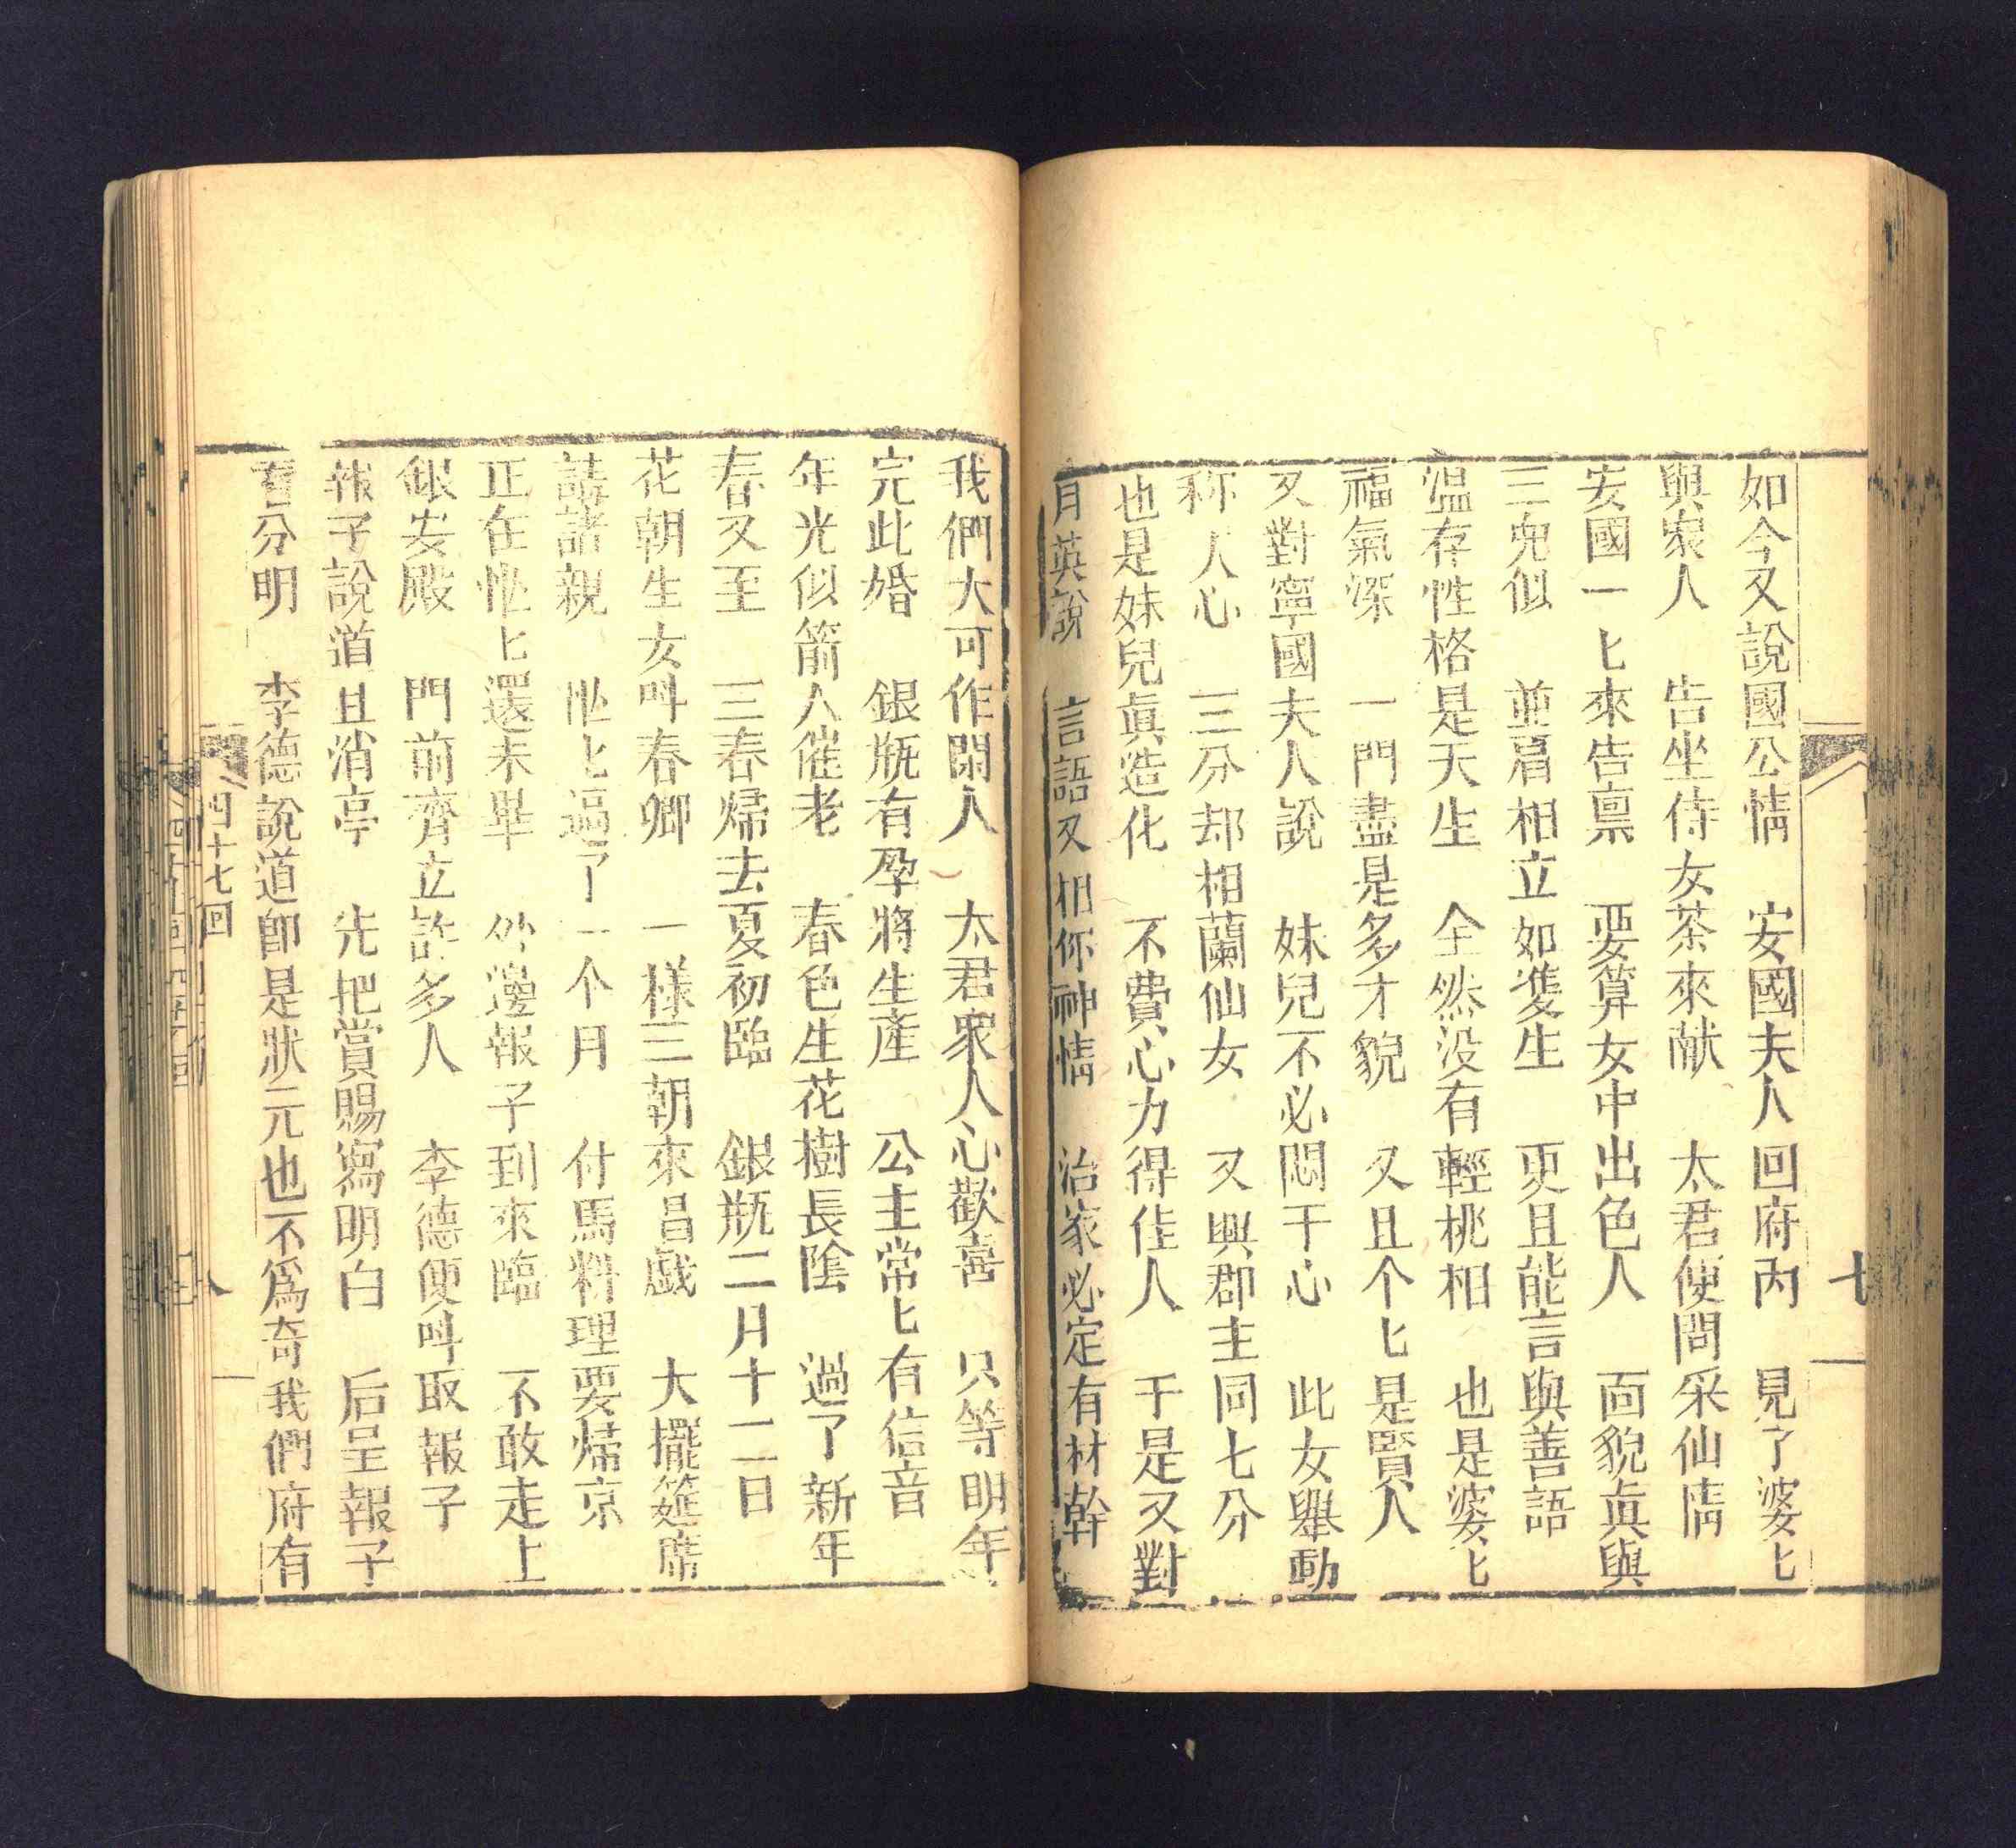 七
如今又說國公情　安國夫人回府內　見了婆匕
與衆人　告坐侍女茶來献　太君便問采仙情
安國一匕來告禀　要算女中出色人　面貌眞與
三兒似　並肩相立如雙生　更且能言與善語
溫存性格是天生　全然没有輕桃相　也是婆匕
福氣深　一門盡是多才貌　又且个匕是賢人
又對寧國夫人說　妹兒不必悶于心　此女舉動
称人心　三分却相蘭仙女　又與郡主同七分
也是妹兒眞造化　不費心力得佳人　于是又對
月英說　言語又相你神情　治家必定有材幹
我們大可作閑人　太君衆人心歡喜　只等明年
完此婚　銀瓶有孕將生產　公主常匕有信音
年光似箭人催老　春色生花樹長陰　過了新年
春又至　三春歸去夏初臨　銀瓶二月十二日
花朝生女呌春卿　一樣三朝來昌戱　大擺筵席
請諸親　忙匕過了一个月　付馬料理要歸京
正在忙匕還未畢　外邊報子到來臨　不敢走上
銀安殿　門前齊立許多人　李德便呌取報子
報子說道且消亭　先把賞賜寫明白　后呈報子
看分明　李德說道卽是狀元也不爲奇我們府有
四十七回
八